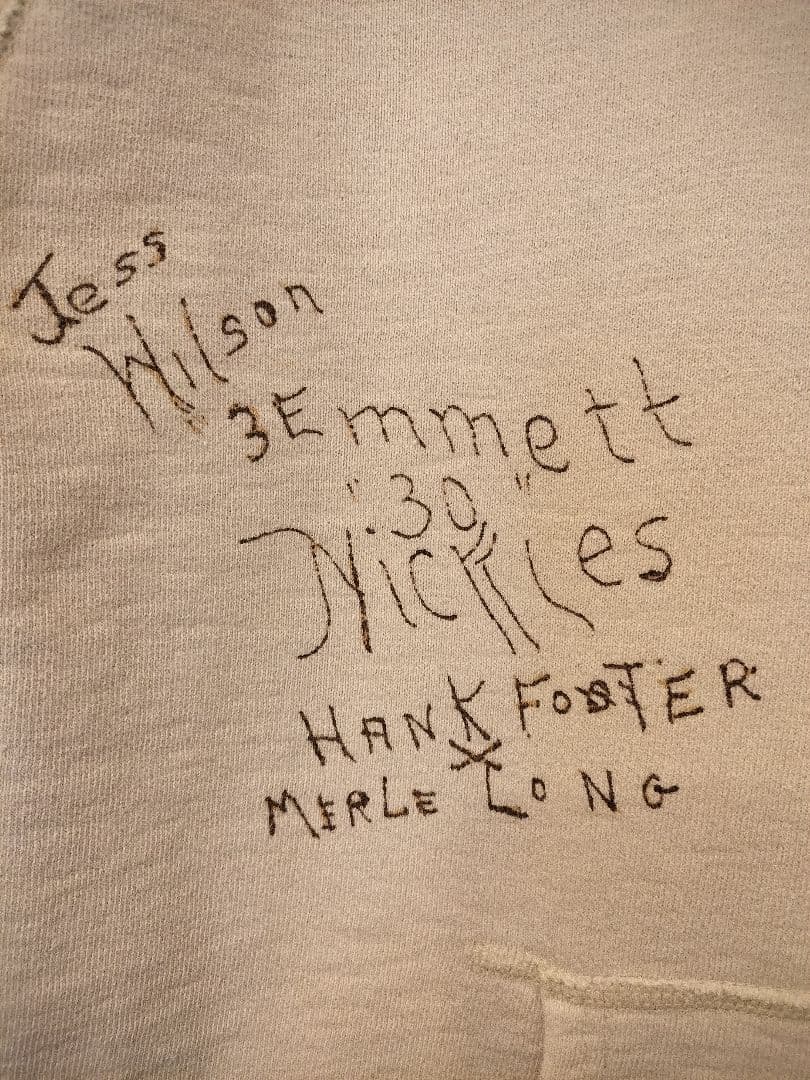 Jess
Wilson
3Emmett
":30"
Nickles
HANK FOSTER
X
MERLE LONG